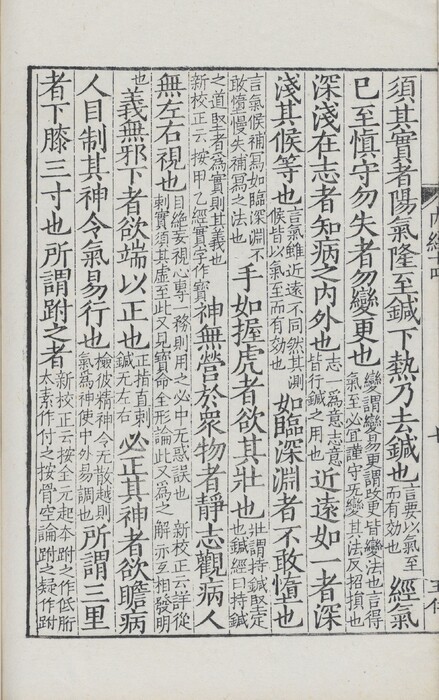 須其實者陽氣隆至鍼下熱乃去鍼也言要以氣至而有効也經氣
已至慎守勿失者勿變更也變謂變易更謂改更皆變法也言得氣至必宜謹守无變其法反招損也
深淺在志者知病之内外也志一爲意志意皆行鍼之用也近遠如一者深
淺其候等也言氣雖近遠不同然其測候皆以氣至而有効也如臨深淵者不敢墯也
言氣候補寫如臨深淵不敢墯慢失補寫之法也手如握虎者欲其壯也壯謂持鍼堅定也鍼經曰持鍼
之道堅者爲實則其義也新校正云按甲乙經實字作寳神無營於衆物者靜志觀病人
無左右視也目絶妄視心專一務則用之必中无惑誤也新校正云詳從刺實須其虚至此文見寳命全形論此又爲之解亦互相發明
也義無邪下者欲端以正也正指直刺鍼无左右必正其神者欲瞻病
人目制其神令氣易行也檢彼精神令无散越則氣爲神使中外易調也所謂三里
者下膝三寸也所謂跗之者新校正云按全元起本跗之作低胻太素作付之按骨空論跗之疑作跗